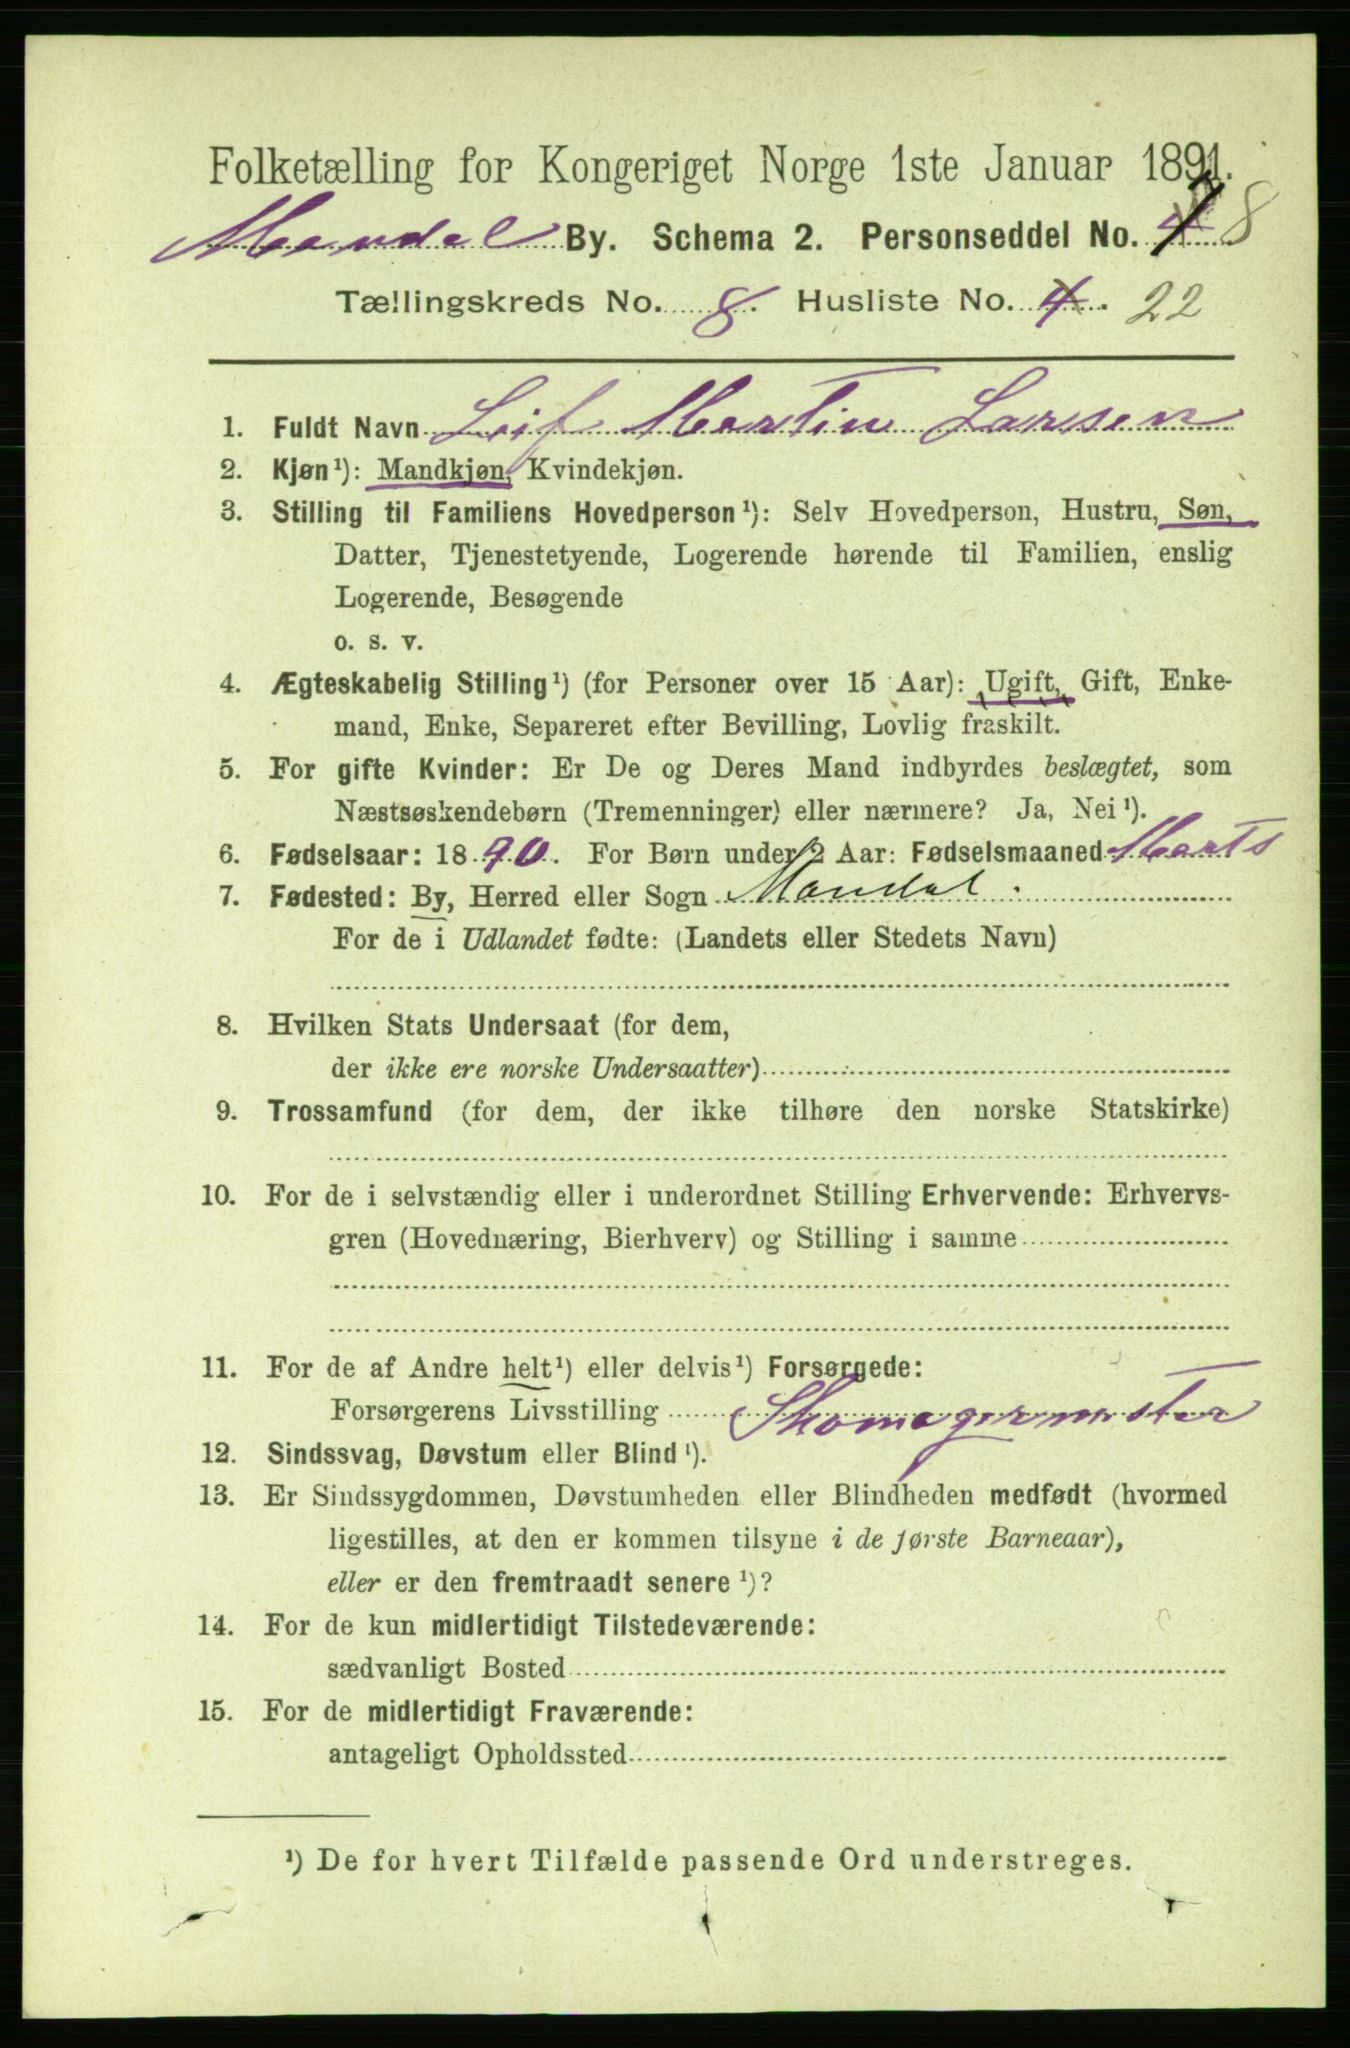 Folketælling for Kongeriget Norge 1ste Januar 1891.
Mandal By. Schema 2. Personseddel No. 8
Tællingskreds No. 8. Husliste No. 4. 22
1. Fuldt Navn Leif Martin Larsen
2. Kjøn¹): Mandkjøn, Kvindekjøn.
3. Stilling til Familiens Hovedperson¹): Selv Hovedperson, Hustru, Søn,
Datter, Tjenestetyende, Logerende hørende til Familien, enslig
Logerende, Besøgende
o. s. v.
4. Ægteskabelig Stilling¹) (for Personer over 15 Aar): Ugift, Gift, Enke-
mand, Enke, Separeret efter Bevilling, Lovlig fraskilt.
5. For gifte Kvinder: Er De og Deres Mand indbyrdes beslægtet, som
Næstsøskendebørn (Tremenninger) eller nærmere? Ja, Nei¹).
6. Fødselsaar: 1890. For Børn under 2 Aar: Fødselsmaaned Marts
7. Fødested: By, Herred eller Sogn Mandal.
For de i Udlandet fødte: (Landets eller Stedets Navn)
8. Hvilken Stats Undersaat (for dem,
der ikke ere norske Undersaatter)
9. Trossamfund (for dem, der ikke tilhøre den norske Statskirke)
10. For de i selvstændig eller i underordnet Stilling Erhvervende: Erhvervs-
gren (Hovednæring, Bierhverv) og Stilling i samme
11. For de af Andre helt¹) eller delvis¹) Forsørgede:
Forsørgerens Livsstilling Skomagermester
12. Sindssvag, Døvstum eller Blind¹).
13. Er Sindssygdommen, Døvstumheden eller Blindheden medfødt (hvormed
ligestilles, at den er kommen tilsyne i de første Barneaar),
eller er den fremtraadt senere¹)?
14. For de kun midlertidigt Tilstedeværende:
sædvanligt Bosted
15. For de midlertidigt Fraværende:
antageligt Opholdssted
¹) De for hvert Tilfælde passende Ord understreges.